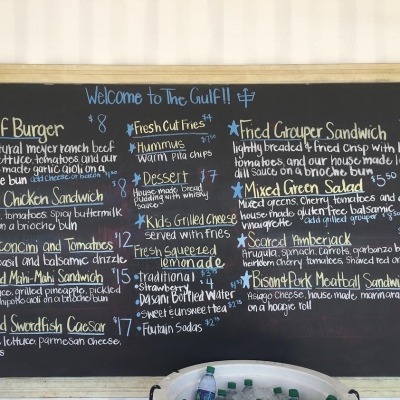 Welcome to The Gulf!!
f Burger $8
natural meyer ranch beef
lettuce, tomatoes, and our
made garlic aioli on a
bun add cheese or bacon
Chicken Sandwich $8
tomatoes spicy buttermilk
on a brioche bun
concini and Tomatoes $12
basil and balsamic drizzle
d Mahi-Mahi Sandwich $15
grilled pineapple, pickled
aioli on a brioche bun
d Swordfish Caesar $17
lettuce, parmesan cheese,
s
Fresh Cut Fries $4
Hummus $7.50
warm pita chips
Dessert $7
House made bread
pudding with whisky
sauce
Kids Grilled Cheese
served with fries
Fresh squeezed
lemonade
Traditional $3.75
Strawberry $4
Dasani Bottled Water
sweet & unsweet tea $2.75
Foutain Sodas $2.75
Fried Grouper Sandwich
lightly breaded & fried crisp with l
tomatoes, and our house made l
dill sauce on a brioche bun
Mixed Green Salad $5.50
Mixed greens, Cherry tomatoes and
house made gluten free balsamic
vinaigrette add grilled grouper
Seared Amberjack
Arugula, spinach, carrots, garbanzo b
heirloom cherry tomatoes, shaved red on
Bison & Pork Meatball Sandwi
Asiago Cheese, house made marinara
on a hoagie roll